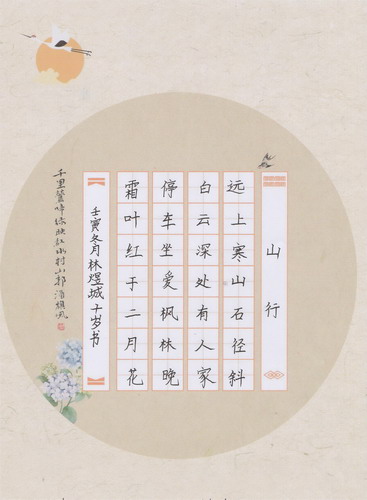 山行
远上寒山石径斜
白云深处有人家
停车坐爱枫林晚
霜叶红于二月花
壬寅冬月林煜城十岁书
千里莺啼绿映红水村山郭酒旗风